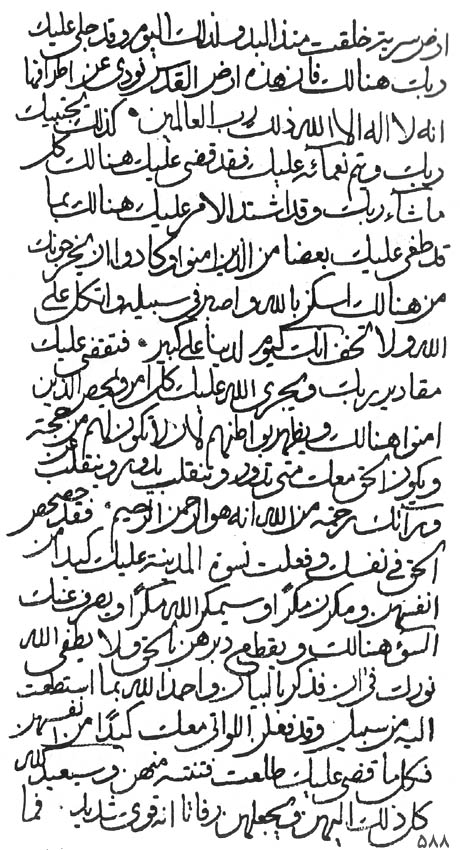 ارض سريته خلقت منذ البدء ولذلك اليوم وقد جلى عليك
ربك هنالك فان هذه ارض القدس نودى عن اطرافها
انه لا اله الا الله ذلك رب العالمين كذلك يجتبيك
ربك ويتم نعمائه عليك فقد قضى عليك هنالك كل
ما شاء ربك وقد اشتد الامر عليك هنالك بما
قد طغى عليك بعضا من الذين امنوا وكادوا ان يخرجونك
من هنالك اسكن بالله واصبر فى سبيله واتكل على
الله ولا تخف انك كيوم لدينا على كبير فتقضى عليك
مقادير ربك ويجرى الله عليك كل امر ويمحص الذين
امنوا هنالك ويظهر بواطنهم لان لا يكون لهم من حجته
ويكون الحق معك متى تدور وتنقلب يدور وينقلب
وراتك رحمة من الله انه هو الرحمن الرحيم فقد حصحص
الحق فى نفسك وفعلت نسوة المدينة عليك كيدا من
انفسهن ومكرن مكرًا وسيمكر الله مكرًا ويصرف عنك
السوء هنالك ويقطع دبرهن بالحق ولا يطفى الله
نورك فى ان فذكر بالبيان واحمد الله بما استطعت
اليه من سبيل وقد فعلن اللواتى معك كيدًا من انفسهن
فكل ما قضى عليك طلعت فتنته منهن وسيعيد الله
كل ذلك اليهن ويجعلهن رفاتا انه قوى شديد فما
٥٨٨